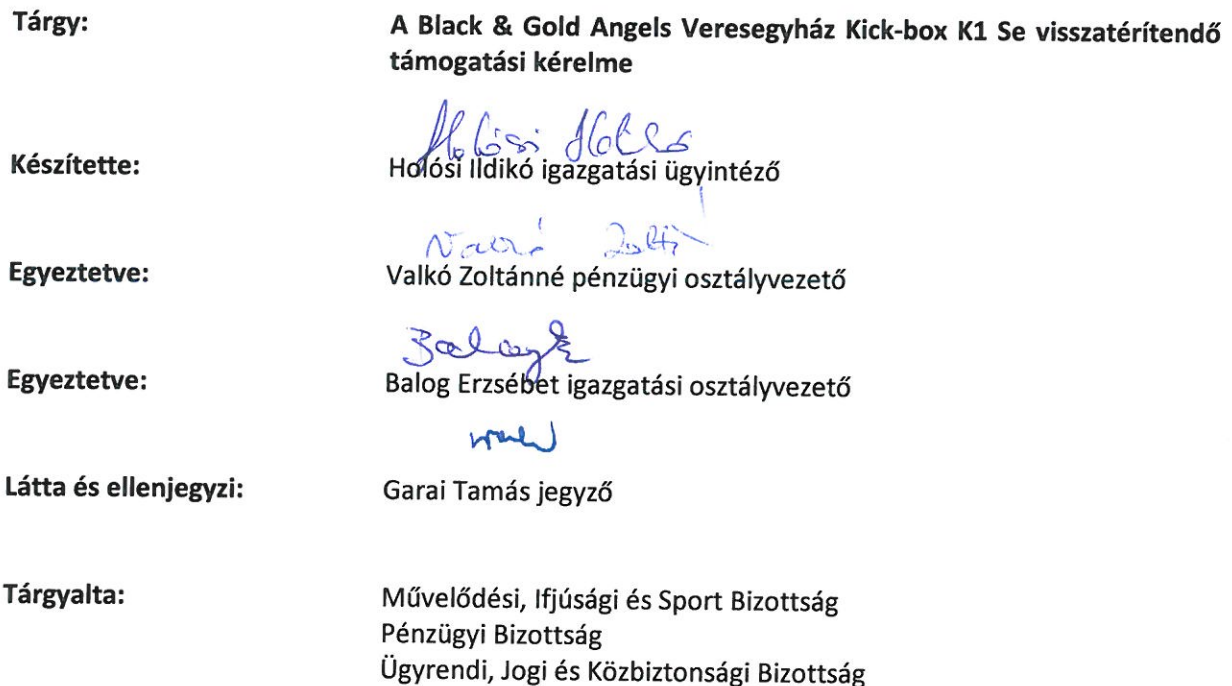 Tárgy: A Black & Gold Angels Veresegyház Kick-box K1 Se visszatérítendő
támogatási kérelme
Készítette: Holósi Ildikó igazgatási ügyintéző
Egyeztetve: Valkó Zoltánné pénzügyi osztályvezető
Egyeztetve: Balog Erzsébet igazgatási osztályvezető
Látta és ellenjegyzi: Garai Tamás jegyző
Tárgyalta: Művelődési, Ifjúsági és Sport Bizottság
Pénzügyi Bizottság
Ügyrendi, Jogi és Közbiztonsági Bizottság